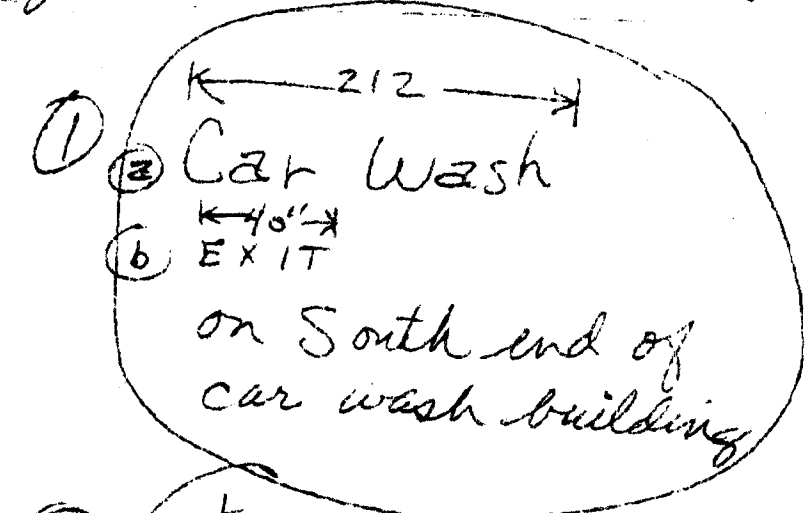 212
① ⓐ Car Wash
40"
ⓑ EXIT
on South end of
car wash building